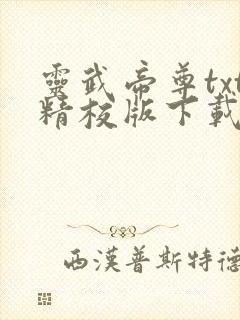 靈武帝尊txt
精校版下載
西漢普斯特德